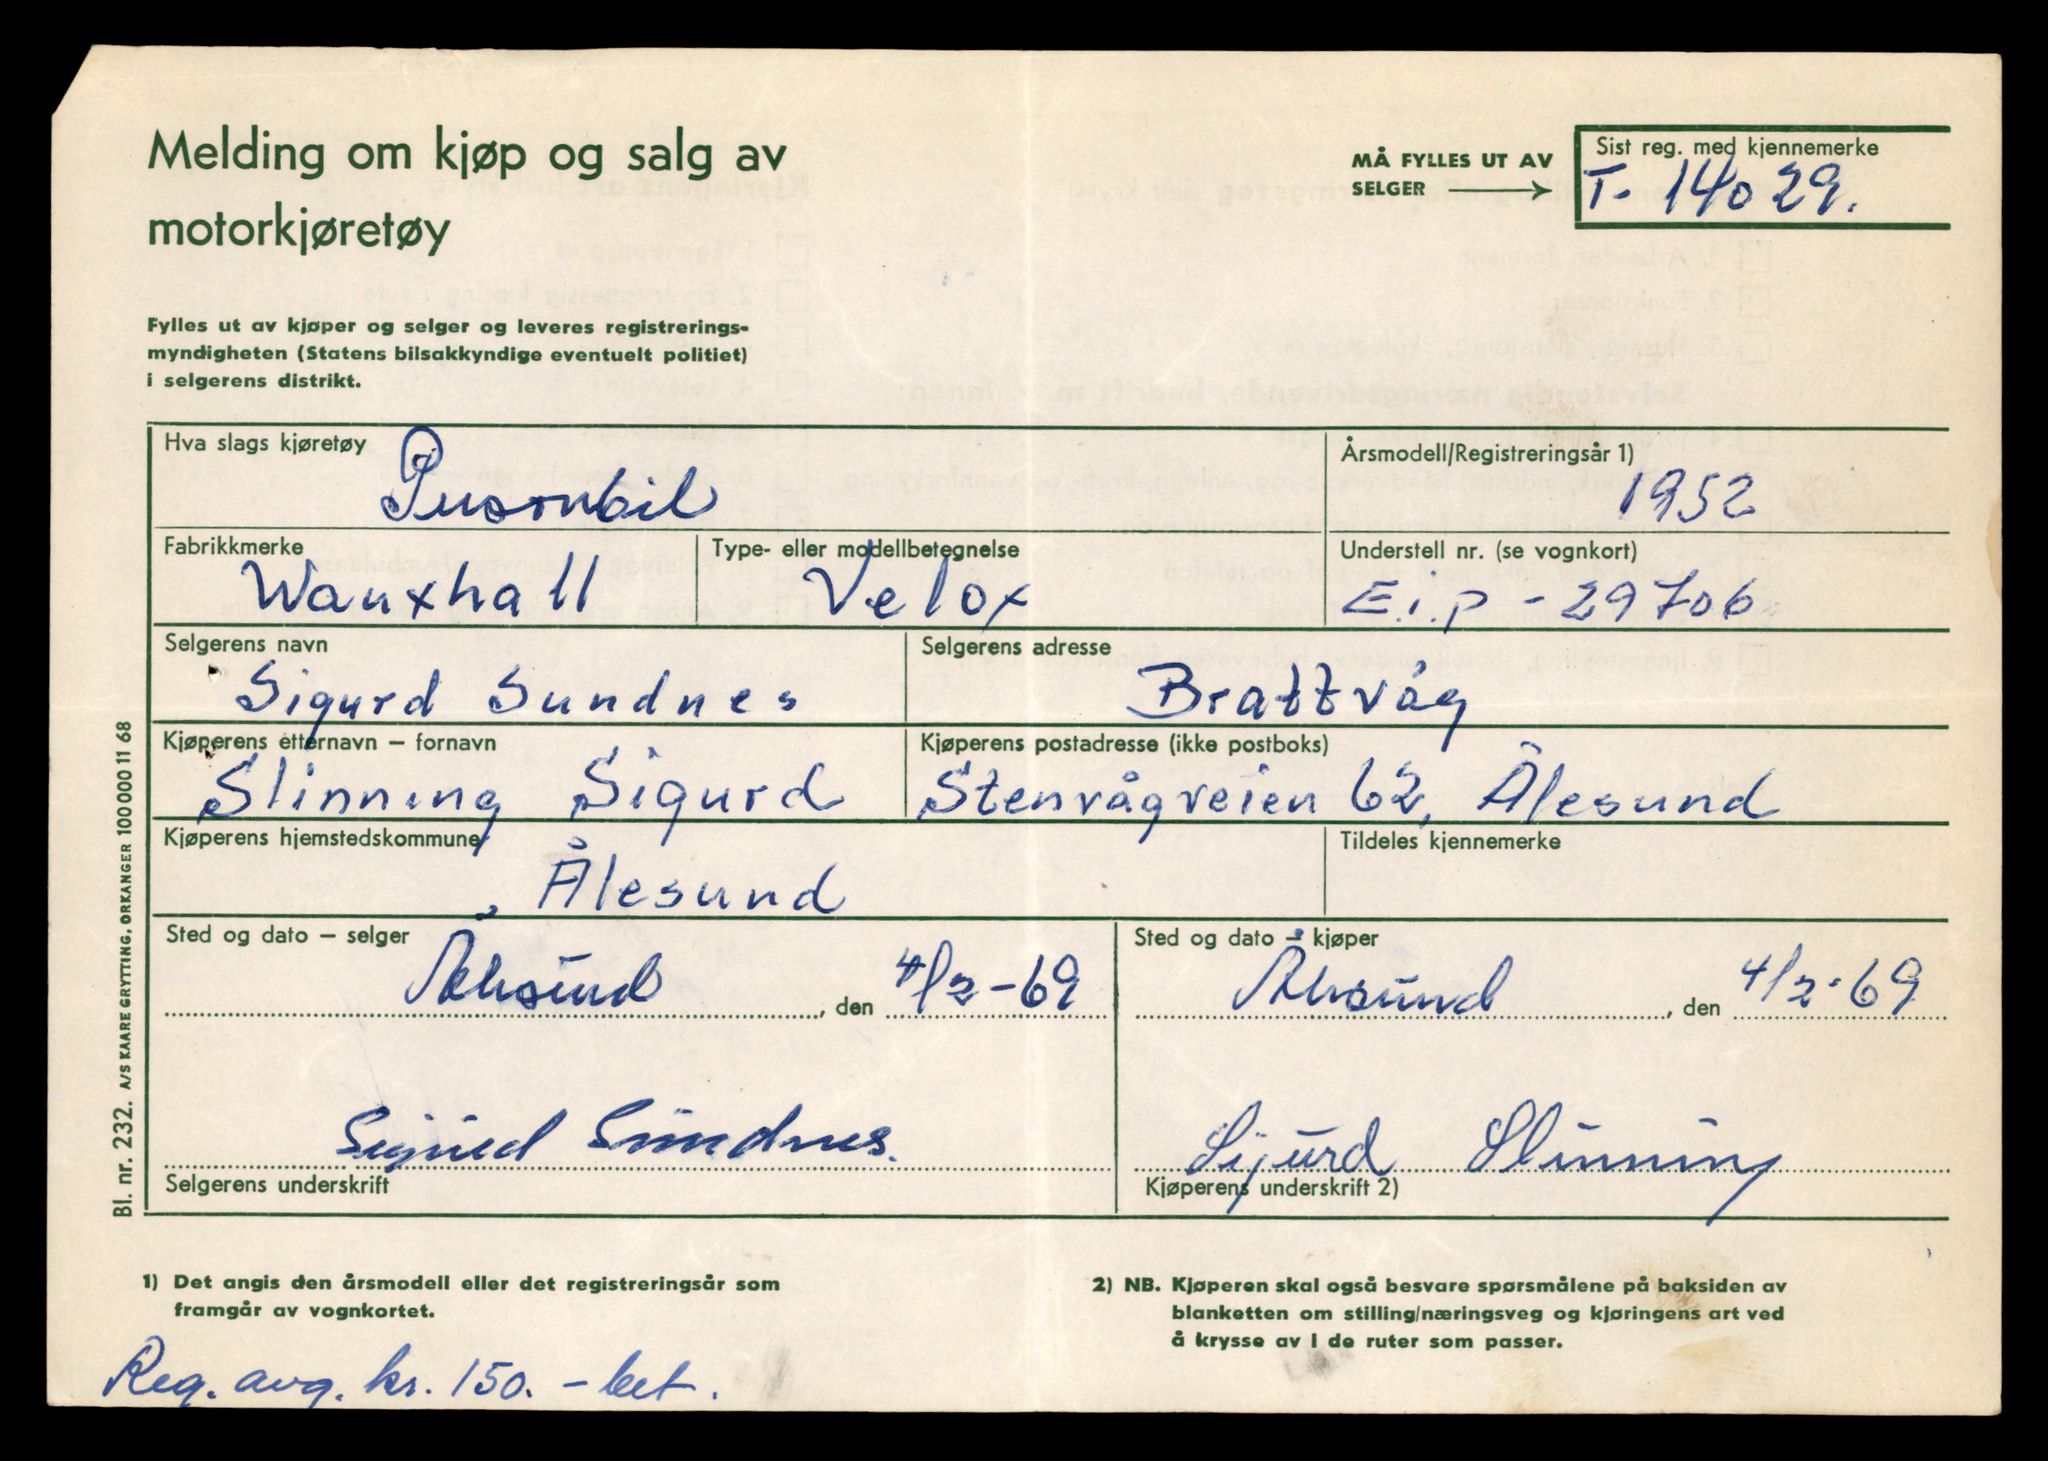 Melding om kjøp og salg av
motorkjøretøy
MÅ FYLLES UT AV
SELGER
Sist reg. med kjennemerke
T- 14029.
Fylles ut av kjøper og selger og leveres registrerings-
myndigheten (Statens bilsakkyndige eventuelt politiet)
i selgerens distrikt.
Hva slags kjøretøy
Personbil
Årsmodell/Registreringsår 1)
1952
Fabrikkmerke
Wauxhall
Type- eller modellbetegnelse
Velox
Understell nr. (se vognkort)
E.i.p - 29706
Selgerens navn
Sigurd Sundnes
Selgerens adresse
Brattvåg
Kjøperens etternavn – fornavn
Slinning Sigurd
Kjøperens postadresse (ikke postboks)
Stenvågveien 62, Ålesund
Kjøperens hjemstedskommune
Ålesund
Tildeles kjennemerke
Sted og dato – selger
Ålesund, den 4/2-69
Sted og dato – kjøper
Ålesund, den 4/2-69
Sigurd Sundnes.
Selgerens underskrift
Sigurd Slinning
Kjøperens underskrift 2)
Bl. nr. 232. A/S KAARE GRYTTING, ORKANGER 100 000 11 68
1) Det angis den årsmodell eller det registreringsår som
framgår av vognkortet.
2) NB. Kjøperen skal også besvare spørsmålene på baksiden av
blanketten om stilling/næringsveg og kjøringens art ved
å krysse av i de ruter som passer.
Reg. avg. kr. 150. - bet.